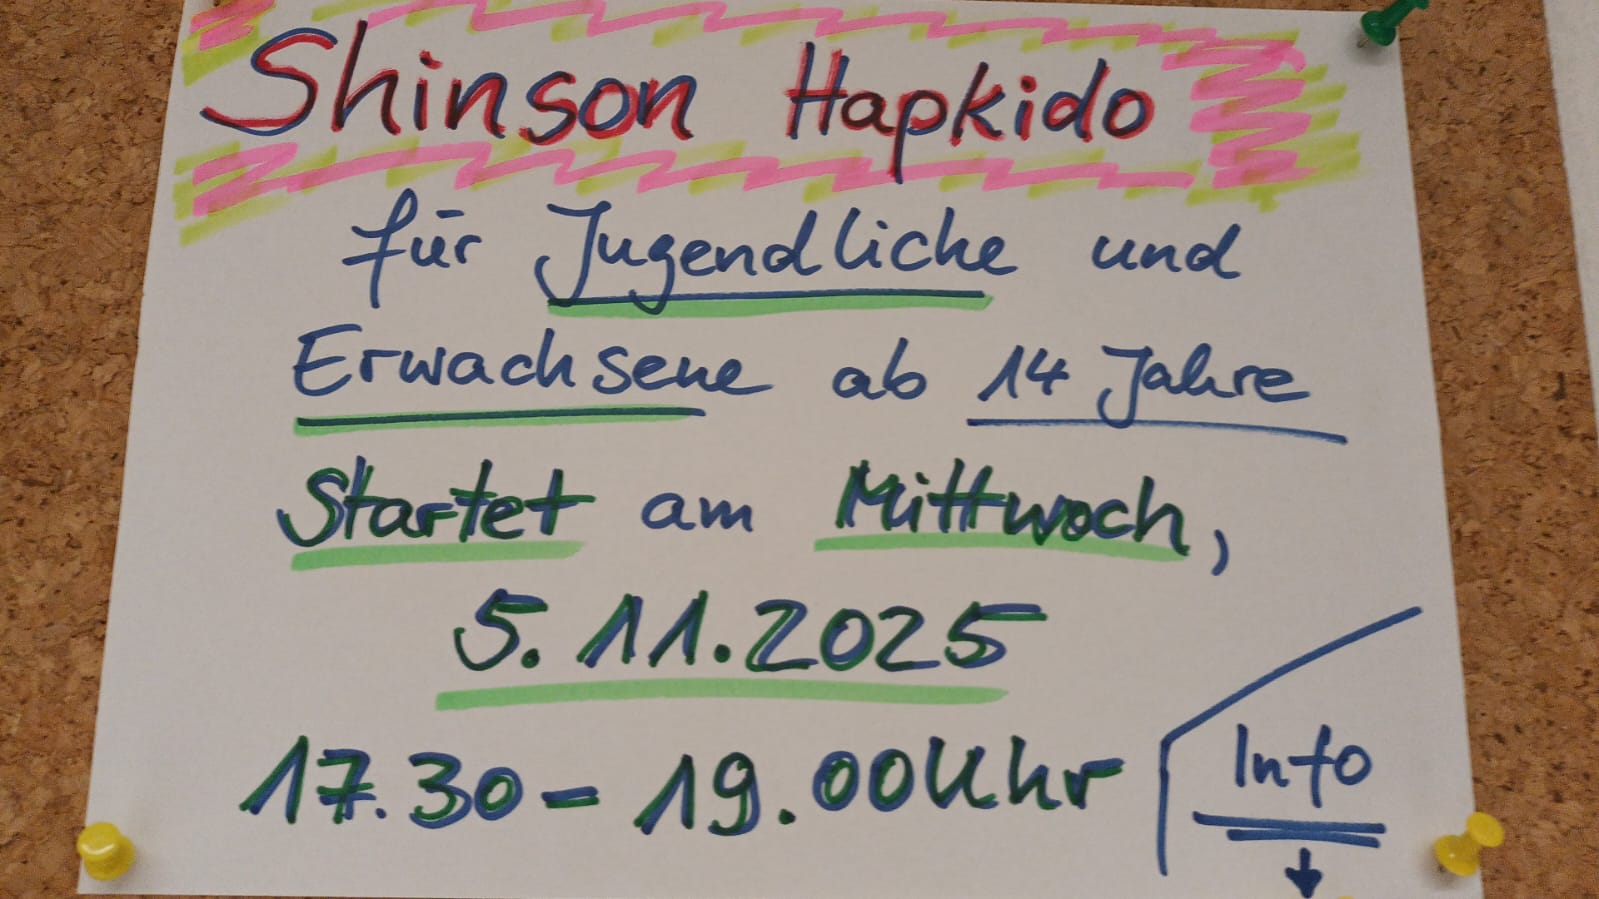 Shinson Hapkido
für Jugendliche und
Erwachsene ab 14 Jahre
Startet am Mittwoch,
5.11.2025
17.30 - 19.00 Uhr
Info